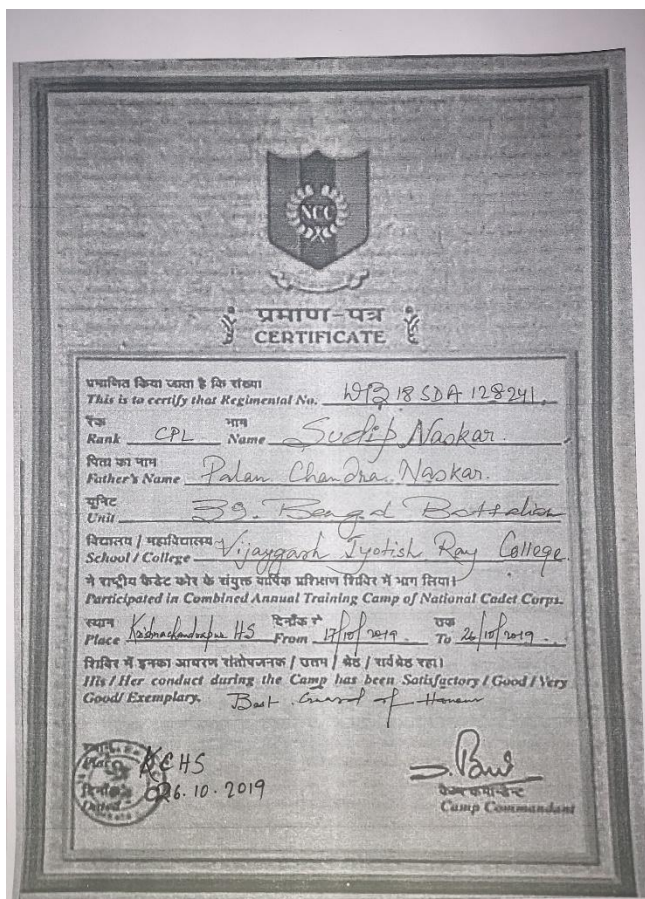 NCC
प्रमाण-पत्र
CERTIFICATE
प्रमाणित किया जाता है कि संख्या
This is to certify that Regimental No. WB 18 SDA 128241.
रैंक नाम
Rank CPL Name Sudip Naskar.
पिता का नाम
Father's Name Palan Chandra Naskar.
यूनिट
Unit 39. Bengal Battalion
विद्यालय / महाविद्यालय
School / College Vijaygarh Jyotish Ray College.
ने राष्ट्रीय कैडेट कोर के संयुक्त वार्षिक प्रशिक्षण शिविर में भाग लिया।
Participated in Combined Annual Training Camp of National Cadet Corps.
स्थान दिनाँक से तक
Place Krishnachandrapur HS From 17/10/2019 To 26/10/2019.
शिविर में इनका आचरण संतोषजनक / उत्तम / श्रेष्ठ / सर्वश्रेष्ठ रहा।
His / Her conduct during the Camp has been Satisfactory / Good / Very
Good/ Exemplary. Best Guard of Honour
KCHS
26.10.2019
कैम्प कमान्डेन्ट
Camp Commandant